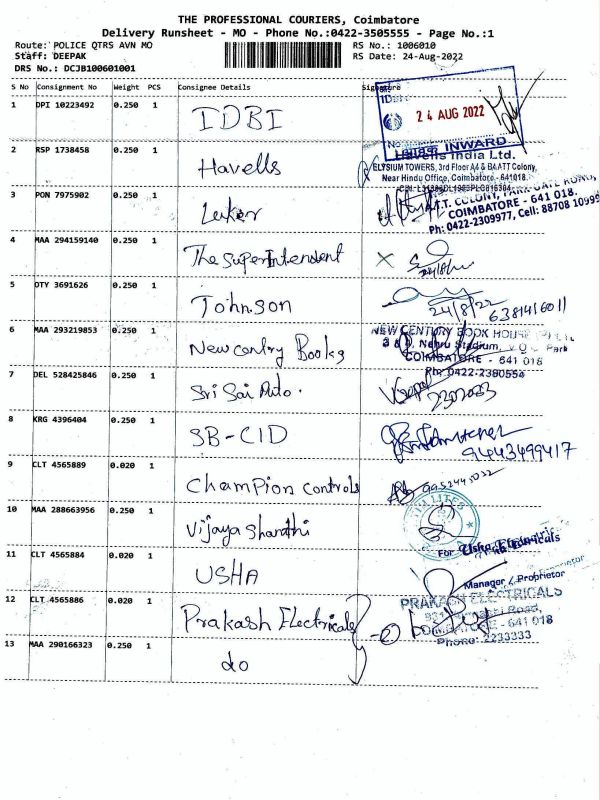 THE PROFESSIONAL COURIERS, Coimbatore
Delivery Runsheet - MO - Phone No.:0422-3505555 - Page No.:1
Route: POLICE QTRS AVN MO RS No.: 1006010
Staff: DEEPAK RS Date: 24-Aug-2022
DRS No.: DCJB100601001
S No Consignment No Weight PCS Consignee Details Signature
1 DPI 10223492 0.250 1 IDBI
24 AUG 2022
INWARD
2 RSP 1738458 0.250 1 Havells
Havells India Ltd.
ELYSIUM TOWERS, 3rd Floor A4 & BAATT Colony,
Near Hindu Office, Coimbatore - 641018.
3 PON 7975902 0.250 1 Luker
A.T.T. COLONY,
COIMBATORE - 641 018.
Ph: 0422-2309977, Cell: 88708 10999
4 MAA 294159140 0.250 1 The Superintendent
5 OTY 3691626 0.250 1 Johnson
24/8/22 6381416011
6 MAA 293219853 0.250 1 New centry Books
NEW CENTURY BOOK HOUSE
Nehru Stadium,
COIMBATORE - 641 018
Ph: 0422-2380554
7 DEL 528425846 0.250 1 Sri Sai Auto.
8 KRG 4396404 0.250 1 SB-CID
9443499417
9 CLT 4565889 0.020 1 Champion Controls
10 MAA 288663956 0.250 1 Vijaya Sharathi
For Usha Electricals
11 CLT 4565884 0.020 1 USHA
Manager / Proprietor
12 CLT 4565886 0.020 1 Prakash Electricals
PRAKASH ELECTRICALS
COIMBATORE - 641 018
Phone: 2233333
13 MAA 290166323 0.250 1 do